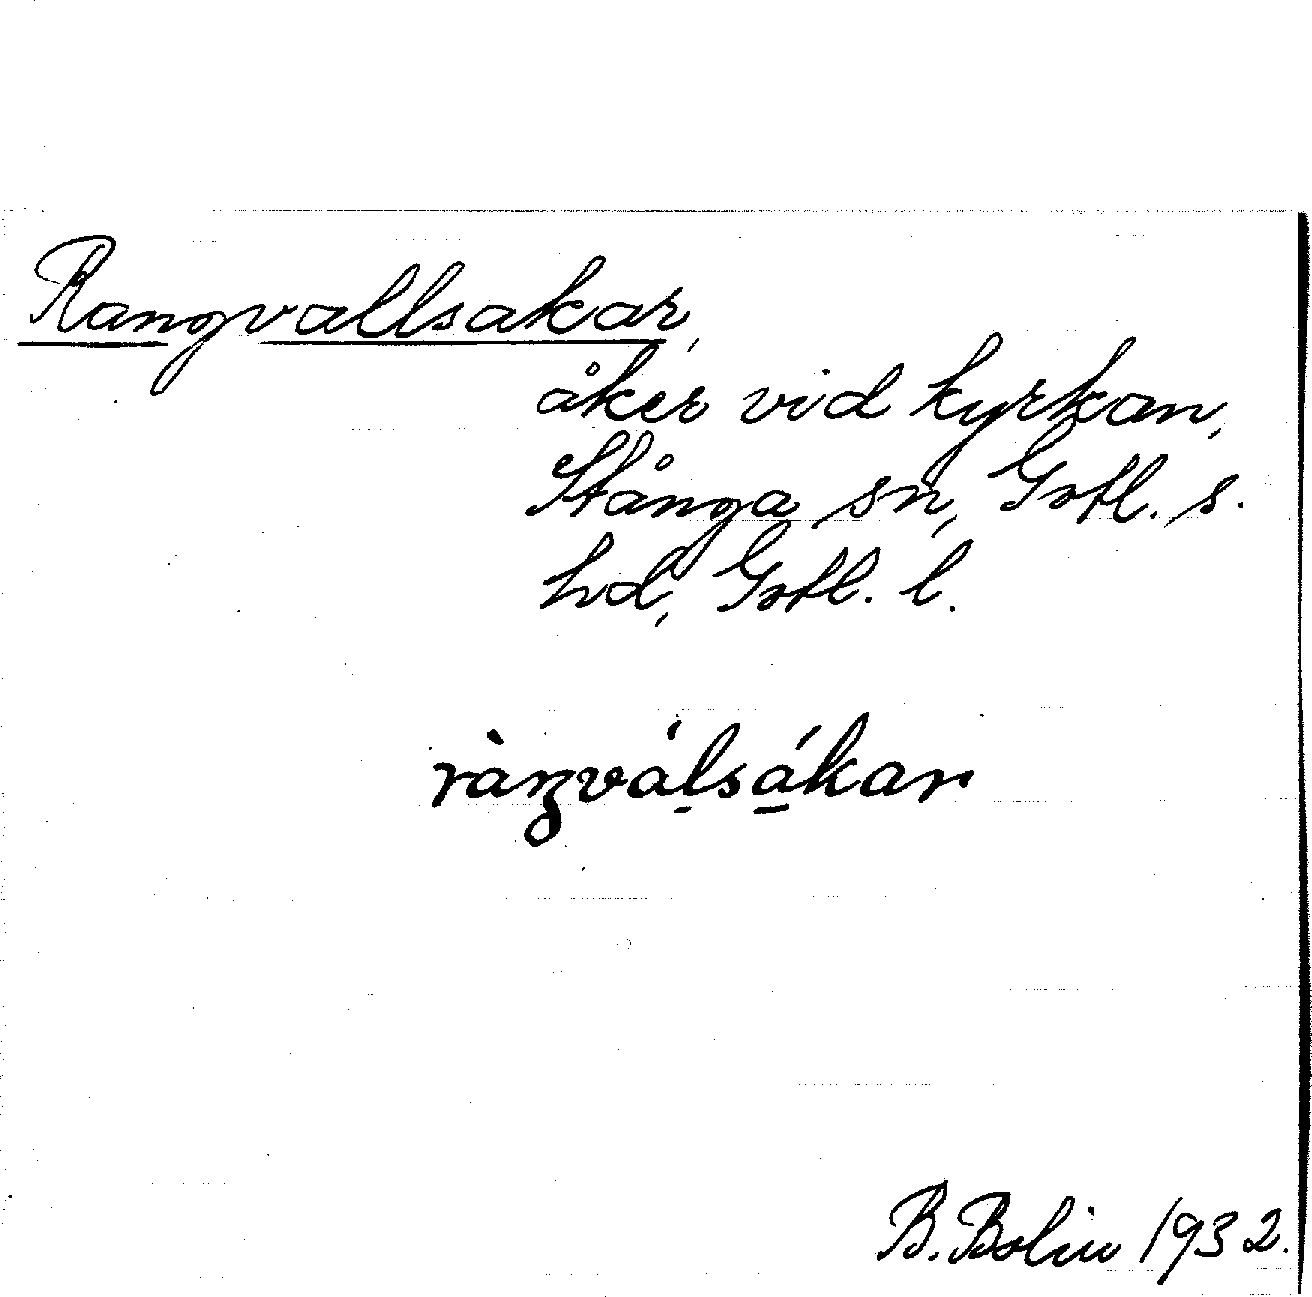 Rangvallsakar,
åker vid kyrkan,
Stånga sn, Gotl. s.
hd, Gotl. l.
ràŋválsákar
B. Bolin 1932.